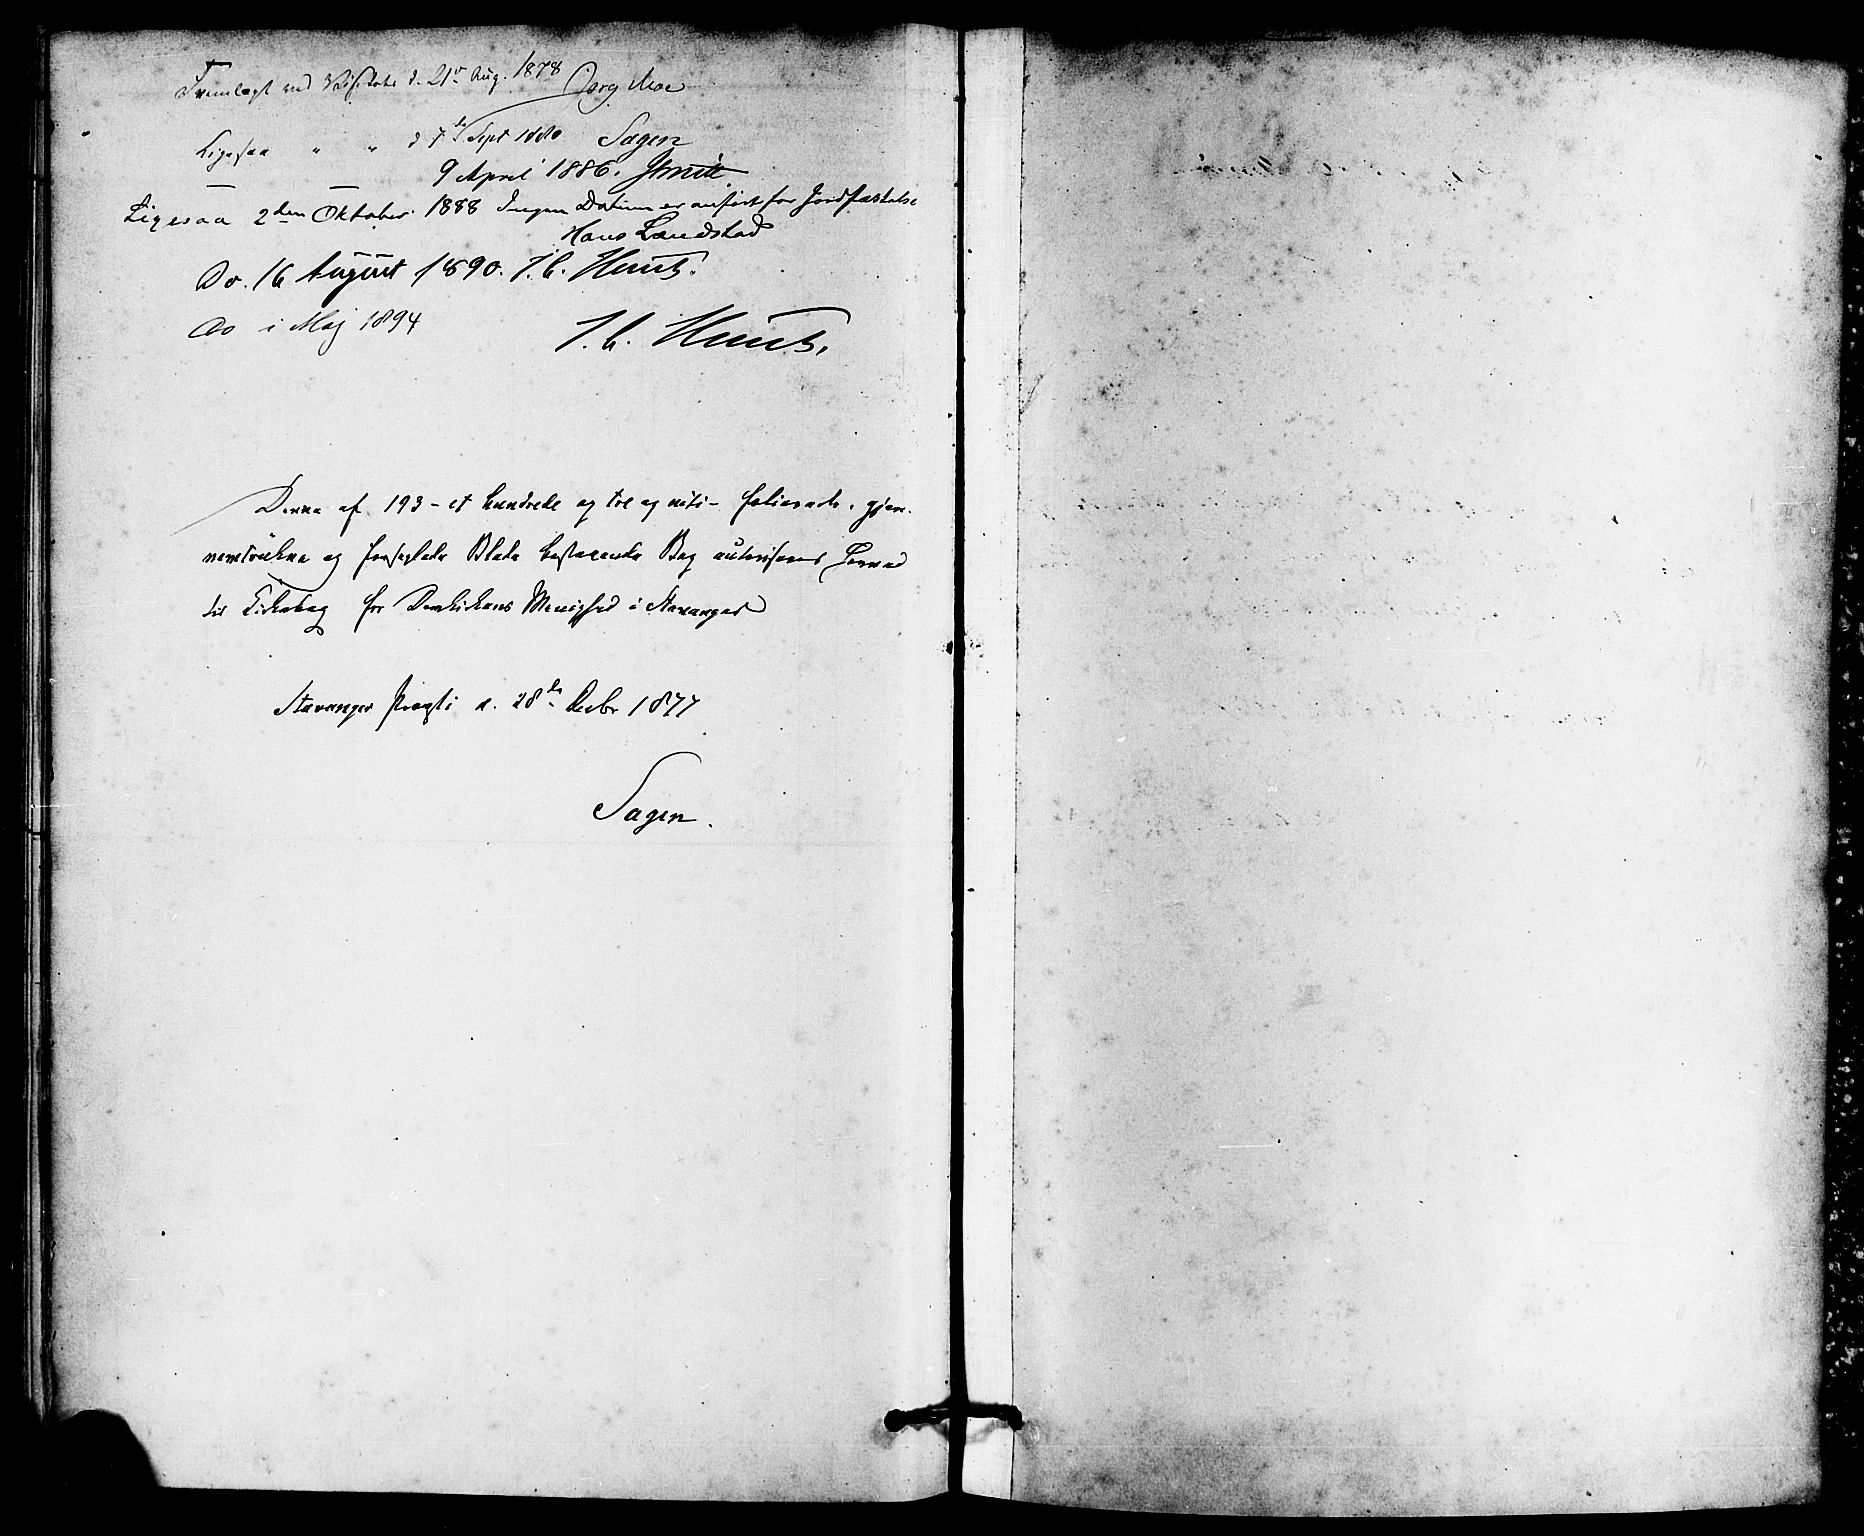 Fremlagt ved Visitats d. 21de Aug. 1878 Jørg Moe
Ligesaa " " d 7de Sept 1880 Sagen
— — 9 April 1886. Smitt
Ligesaa 2den Oktober 1888 Ingen Datum er anført for Jordfæstelse
Hans Landstad
Do. 16 August 1890. J. C. Heuch.
Do i Maj 1894 J. C. Heuch.
Denne af 193 - et hundrede og tre og niti - folierede, gjen-
nemtrukne og forseglede Blade bestaaende Bog autoriseres herved
til Kirkebog for Domkirkens Menighed i Stavanger
Stavanger Provsti d. 28de Decbr 1877
Sagen.